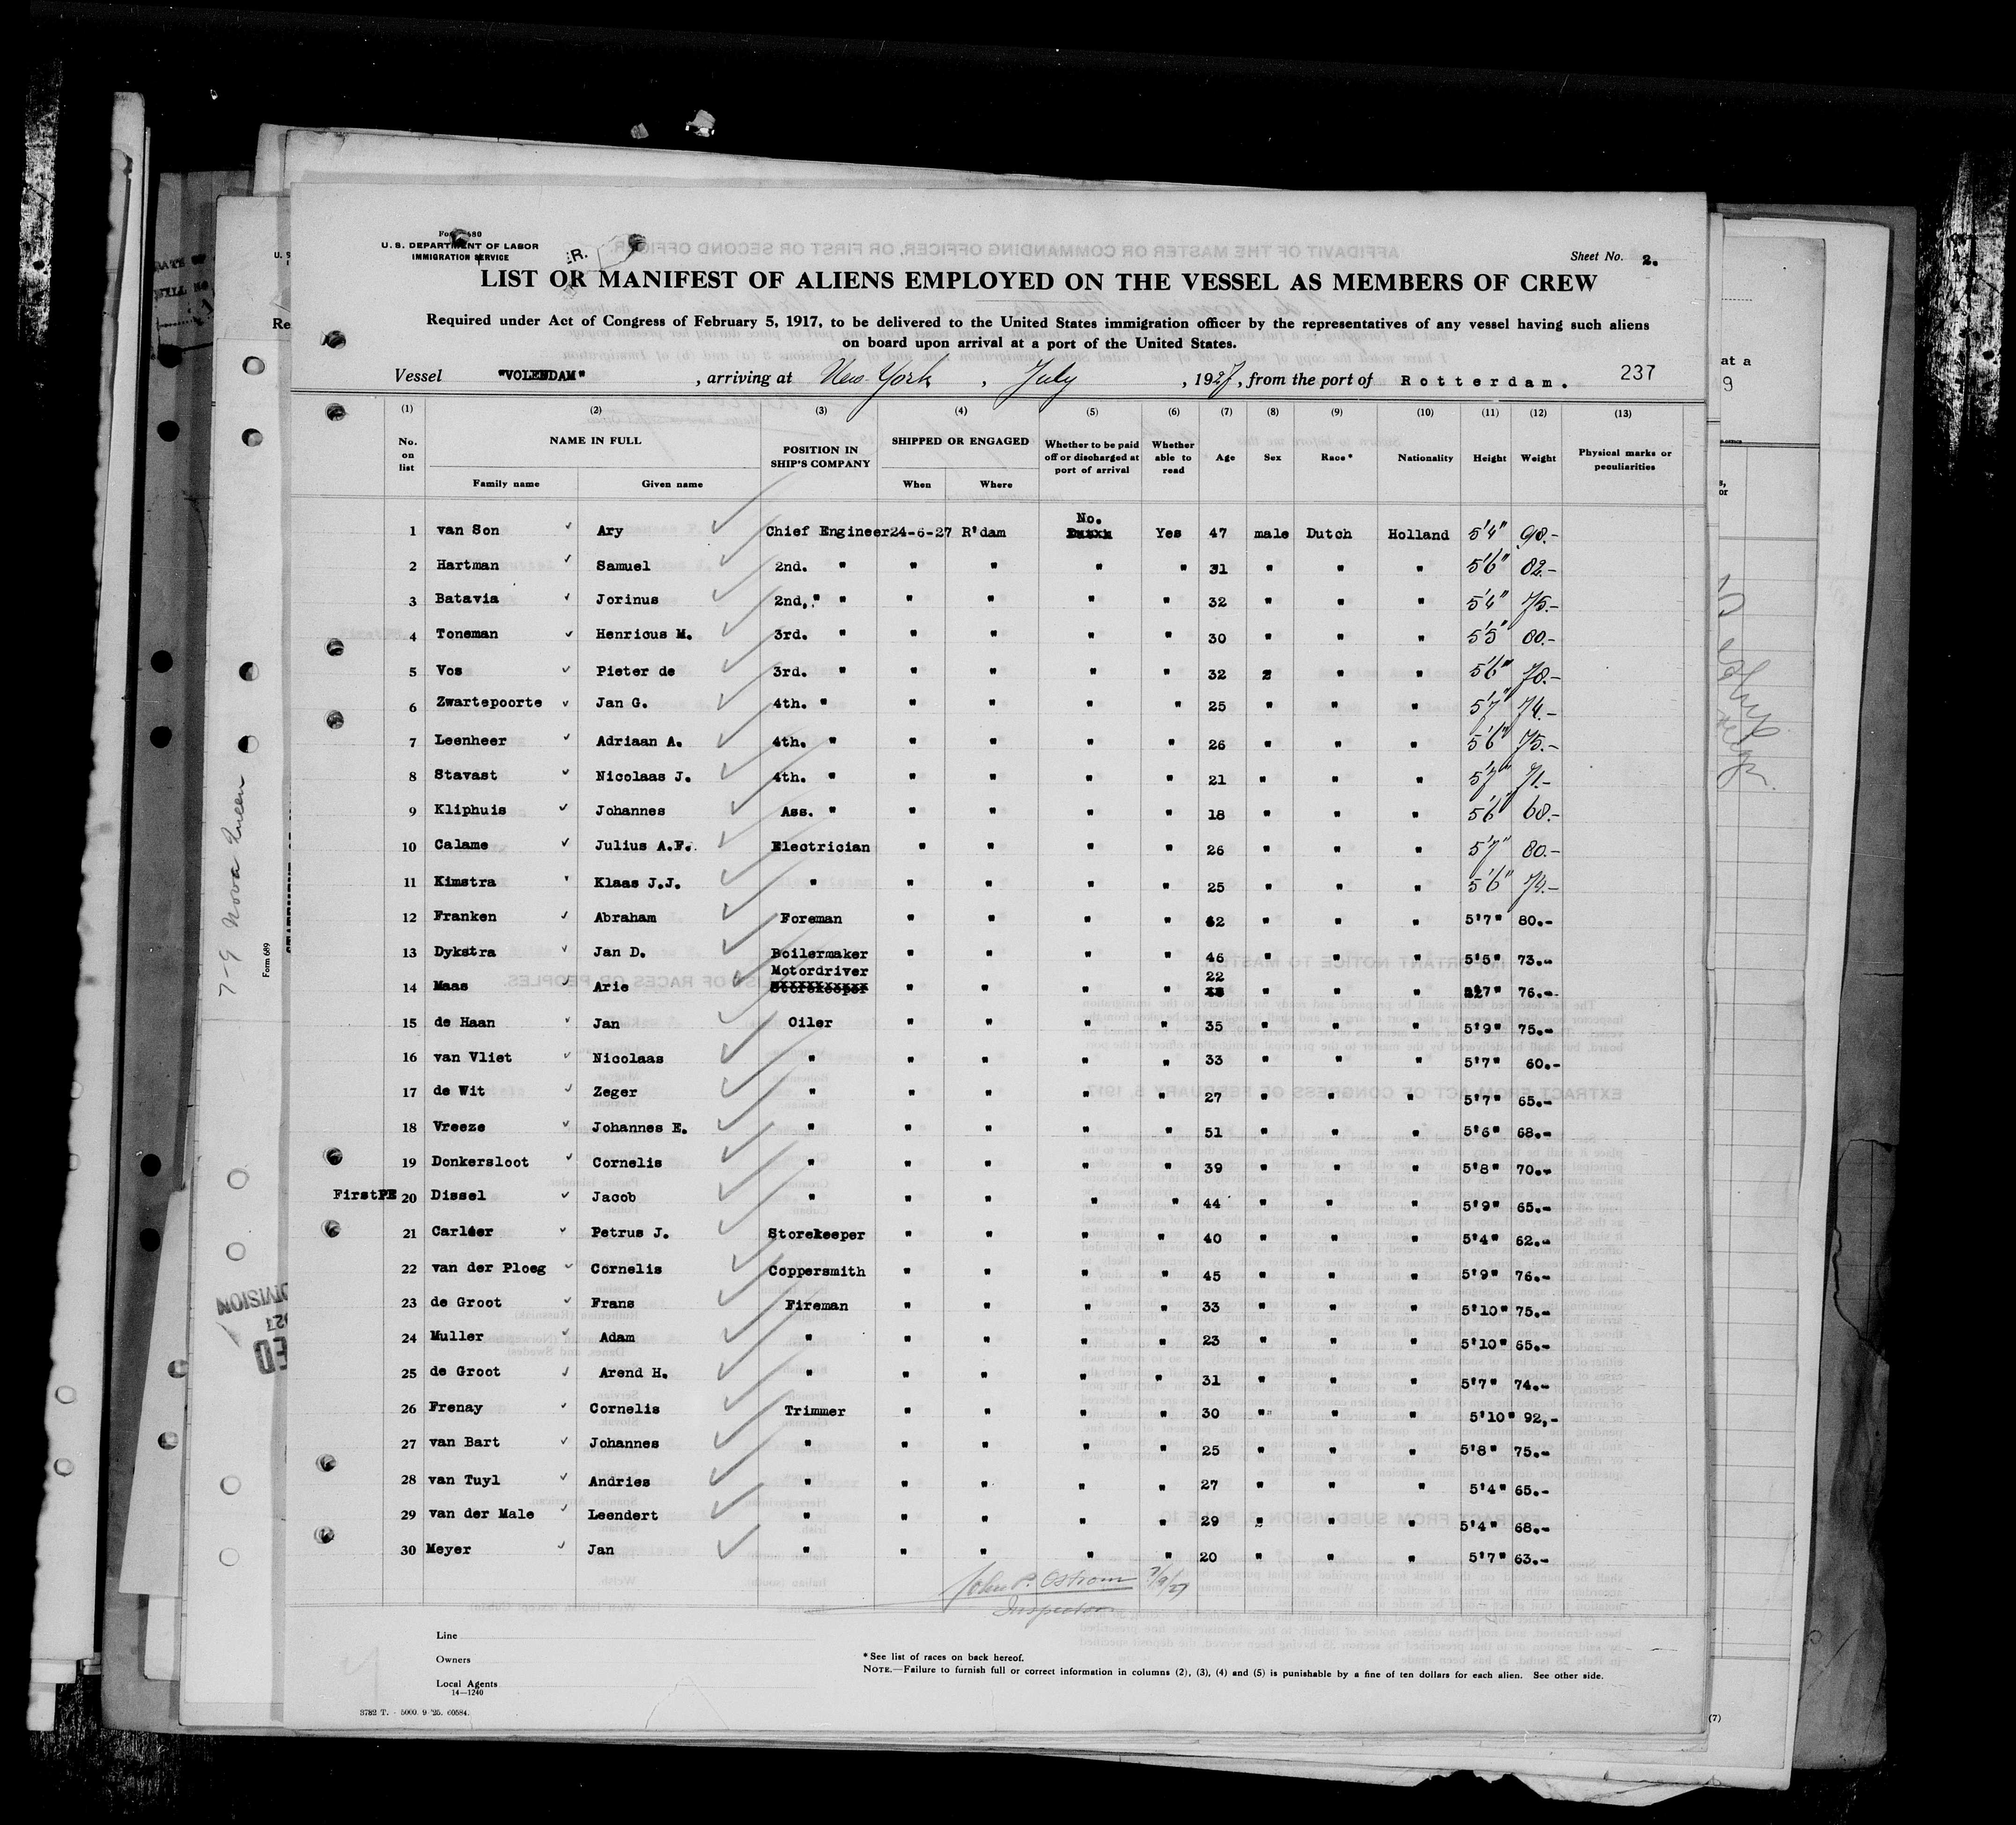 Form 680
U. S. DEPARTMENT OF LABOR
IMMIGRATION SERVICE
ER.
Sheet No. 2.
LIST OR MANIFEST OF ALIENS EMPLOYED ON THE VESSEL AS MEMBERS OF CREW
Required under Act of Congress of February 5, 1917, to be delivered to the United States immigration officer by the representatives of any vessel having such aliens
on board upon arrival at a port of the United States.
Vessel "VOLENDAM", arriving at New York, July, 1927, from the port of Rotterdam. 237
(1) (2) (3) (4) (5) (6) (7) (8) (9) (10) (11) (12) (13)
No. on list NAME IN FULL Family name Given name POSITION IN SHIP'S COMPANY SHIPPED OR ENGAGED When Where Whether to be paid off or discharged at port of arrival Whether able to read Age Sex Race* Nationality Height Weight Physical marks or peculiarities
1 van Son Ary Chief Engineer 24-6-27 R'dam No. Yes 47 male Dutch Holland 5'4" 90.-
2 Hartman Samuel 2nd. " " " " " 31 " " " 5'6" 82.-
3 Batavia Jorinus 2nd. " " " " " " 32 " " " 5'4" 75.-
4 Toneman Henricus M. 3rd. " " " " " 30 " " " 5'5" 80.-
5 Vos Pieter de 3rd. " " " " " 32 " " " 5'6" 78.-
6 Zwartepoorte Jan G. 4th. " " " " " 25 " " " 5'7" 74.-
7 Leenheer Adriaan A. 4th. " " " " " 26 " " " 5'6" 75.-
8 Stavast Nicolaas J. 4th. " " " " " 21 " " " 5'7" 71.-
9 Kliphuis Johannes Ass. " " " " " 18 " " " 5'6" 68.-
10 Calame Julius A.F. Electrician " " " " 26 " " " 5'7" 80.-
11 Kimstra Klaas J.J. " " " " " 25 " " " 5'6" 70.-
12 Franken Abraham Foreman " " " " 42 " " " 5'7" 80.-
13 Dykstra Jan D. Boilermaker " " " " 46 " " " 5'5" 73.-
14 Maas Arie Motordriver Storekeeper " " " " 22 " " " 5'7" 76.-
15 de Haan Jan Oiler " " " " 35 " " " 5'9" 75.-
16 van Vliet Nicolaas " " " " " 33 " " " 5'7" 60.-
17 de Wit Zeger " " " " " 27 " " " 5'7" 65.-
18 Vreeze Johannes E. " " " " " 51 " " " 5'6" 68.-
19 Donkersloot Cornelis " " " " " 39 " " " 5'8" 70.-
FirstPE 20 Dissel Jacob " " " " " 44 " " " 5'9" 65.-
21 Carléer Petrus J. Storekeeper " " " " 40 " " " 5'4" 62.-
22 van der Ploeg Cornelis Coppersmith " " " " 45 " " " 5'9" 76.-
23 de Groot Frans Fireman " " " " 33 " " " 5'10" 75.-
24 Muller Adam " " " " " 23 " " " 5'10" 65.-
25 de Groot Arend H. " " " " " 31 " " " 5'7" 74.-
26 Frenay Cornelis Trimmer " " " " 30 " " " 5'10" 92,-
27 van Bart Johannes " " " " " 25 " " " 5'8" 75.-
28 van Tuyl Andries " " " " " 27 " " " 5'4" 65.-
29 van der Male Leendert " " " " " 29 " " " 5'4" 68.-
30 Meyer Jan " " " " " 20 " " " 5'7" 63.-
John P. Ostrom 7/9/27
Inspector
Line
Owners
Local Agents
14—1240
*See list of races on back hereof.
NOTE.—Failure to furnish full or correct information in columns (2), (3), (4) and (5) is punishable by a fine of ten dollars for each alien. See other side.
3782 T. - 5000. 9 '25. 60584.
7-9 Nova Queen
Form 689
at a
9
(7)